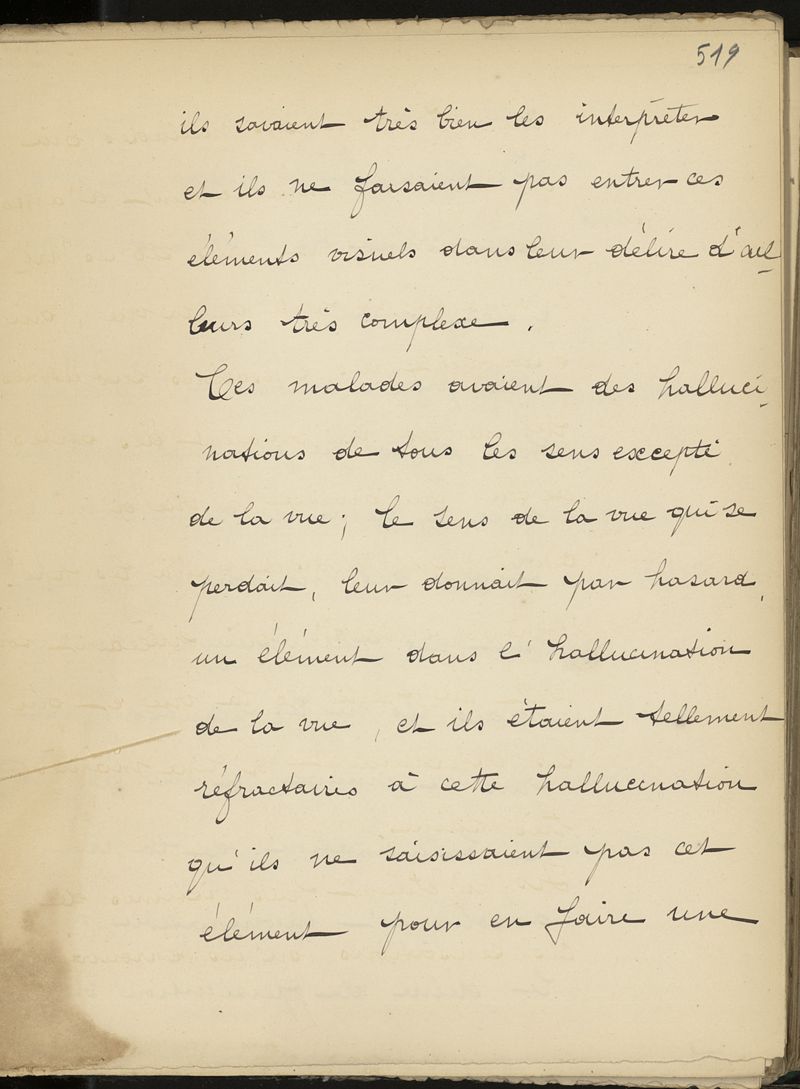 519
ils savaient très bien les interpréter
et ils ne faisaient pas entrer ces
éléments visuels dans leur délire d'ail-
leurs très complexe.
Ces malades avaient des halluci-
nations de tous les sens excepté
de la vue; le sens de la vue qui se
perdait, leur donnait par hasard,
un élément dans l'hallucination
de la vue, et ils étaient tellement
réfractaires à cette hallucination
qu'ils ne saisissaient pas cet
élément pour en faire une